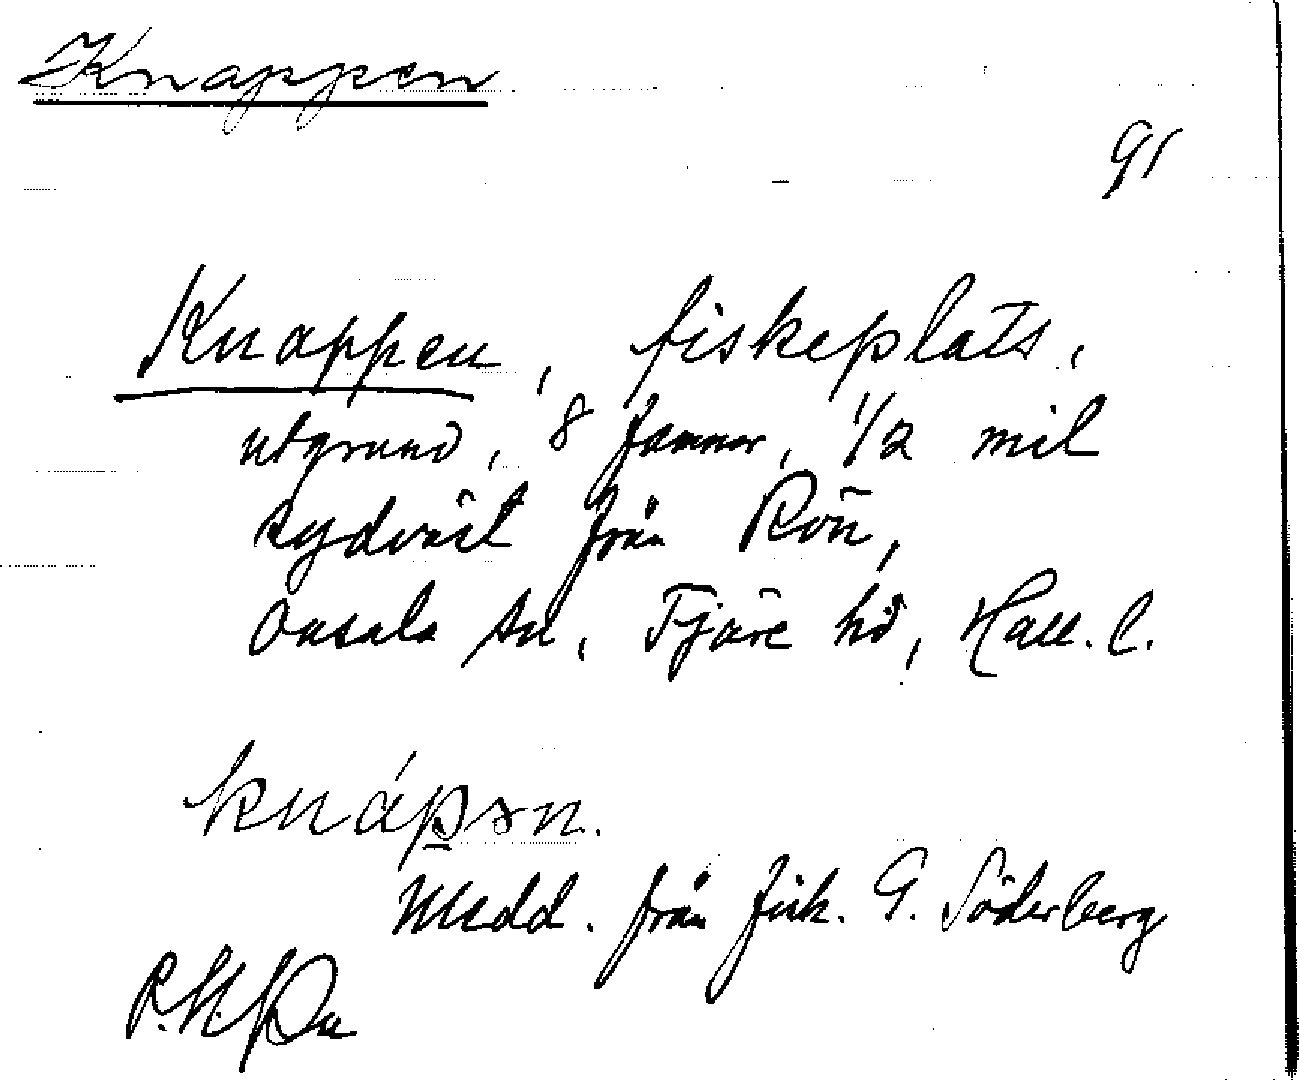 Knappen
91
Knappen, fiskeplats,
utgrund, 8 famnar, 1/2 mil
sydväst från Rön,
Onsala sn, Fjäre hd, Hall. l.
knápən.
Medd. från fisk. G. Söderberg